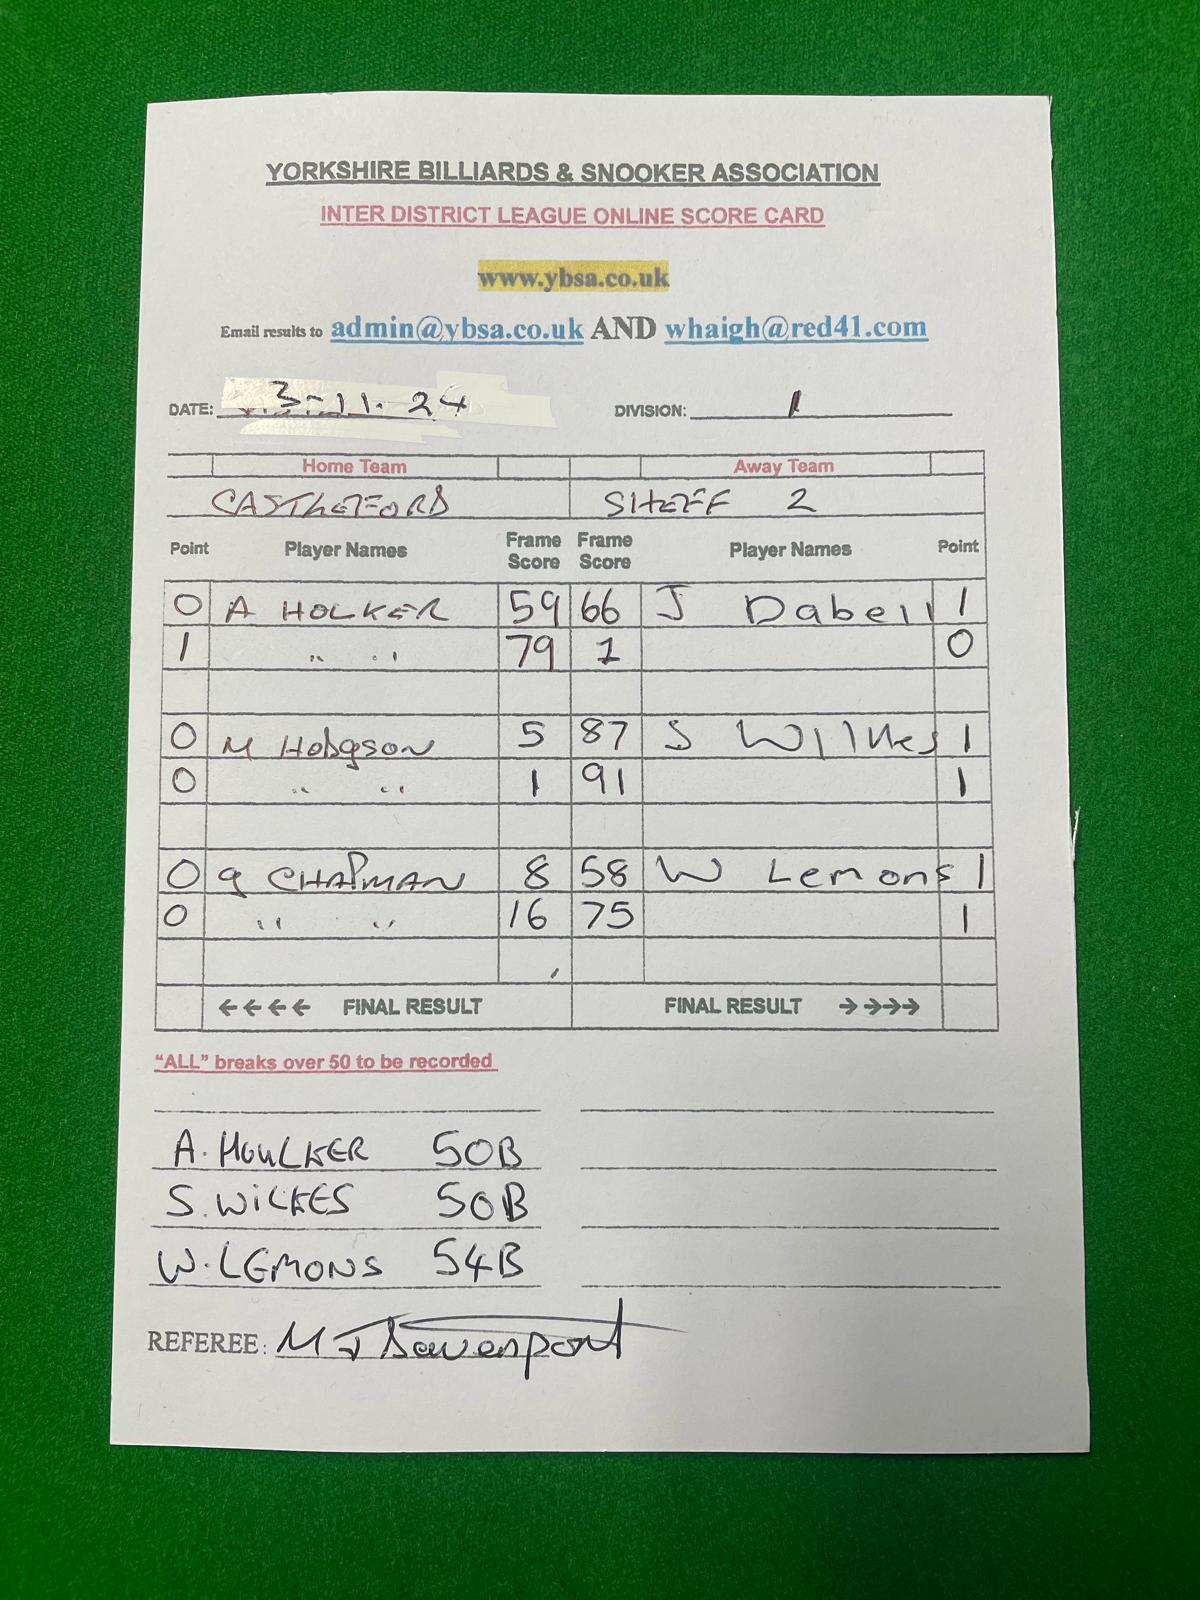 YORKSHIRE BILLIARDS & SNOOKER ASSOCIATION
INTER DISTRICT LEAGUE ONLINE SCORE CARD
www.ybsa.co.uk
Email results to admin@ybsa.co.uk AND whaigh@red41.com
DATE: 3-11-24 DIVISION: 1
Home Team Away Team
CASTLEFORD SHEFF 2
Point Player Names Frame Score Frame Score Player Names Point
0 A HOLKER 59 66 J Dabell 1
1 " " 79 1 0
0 M Hodgson 5 87 S Wilkes 1
0 " " 1 91 1
0 G CHAPMAN 8 58 W Lemons 1
0 " " 16 75 1
←←←← FINAL RESULT FINAL RESULT →→→→
“ALL” breaks over 50 to be recorded
A. HOULKER 50B
S. WILKES 50B
W. LEMONS 54B
REFEREE: M J Davenport